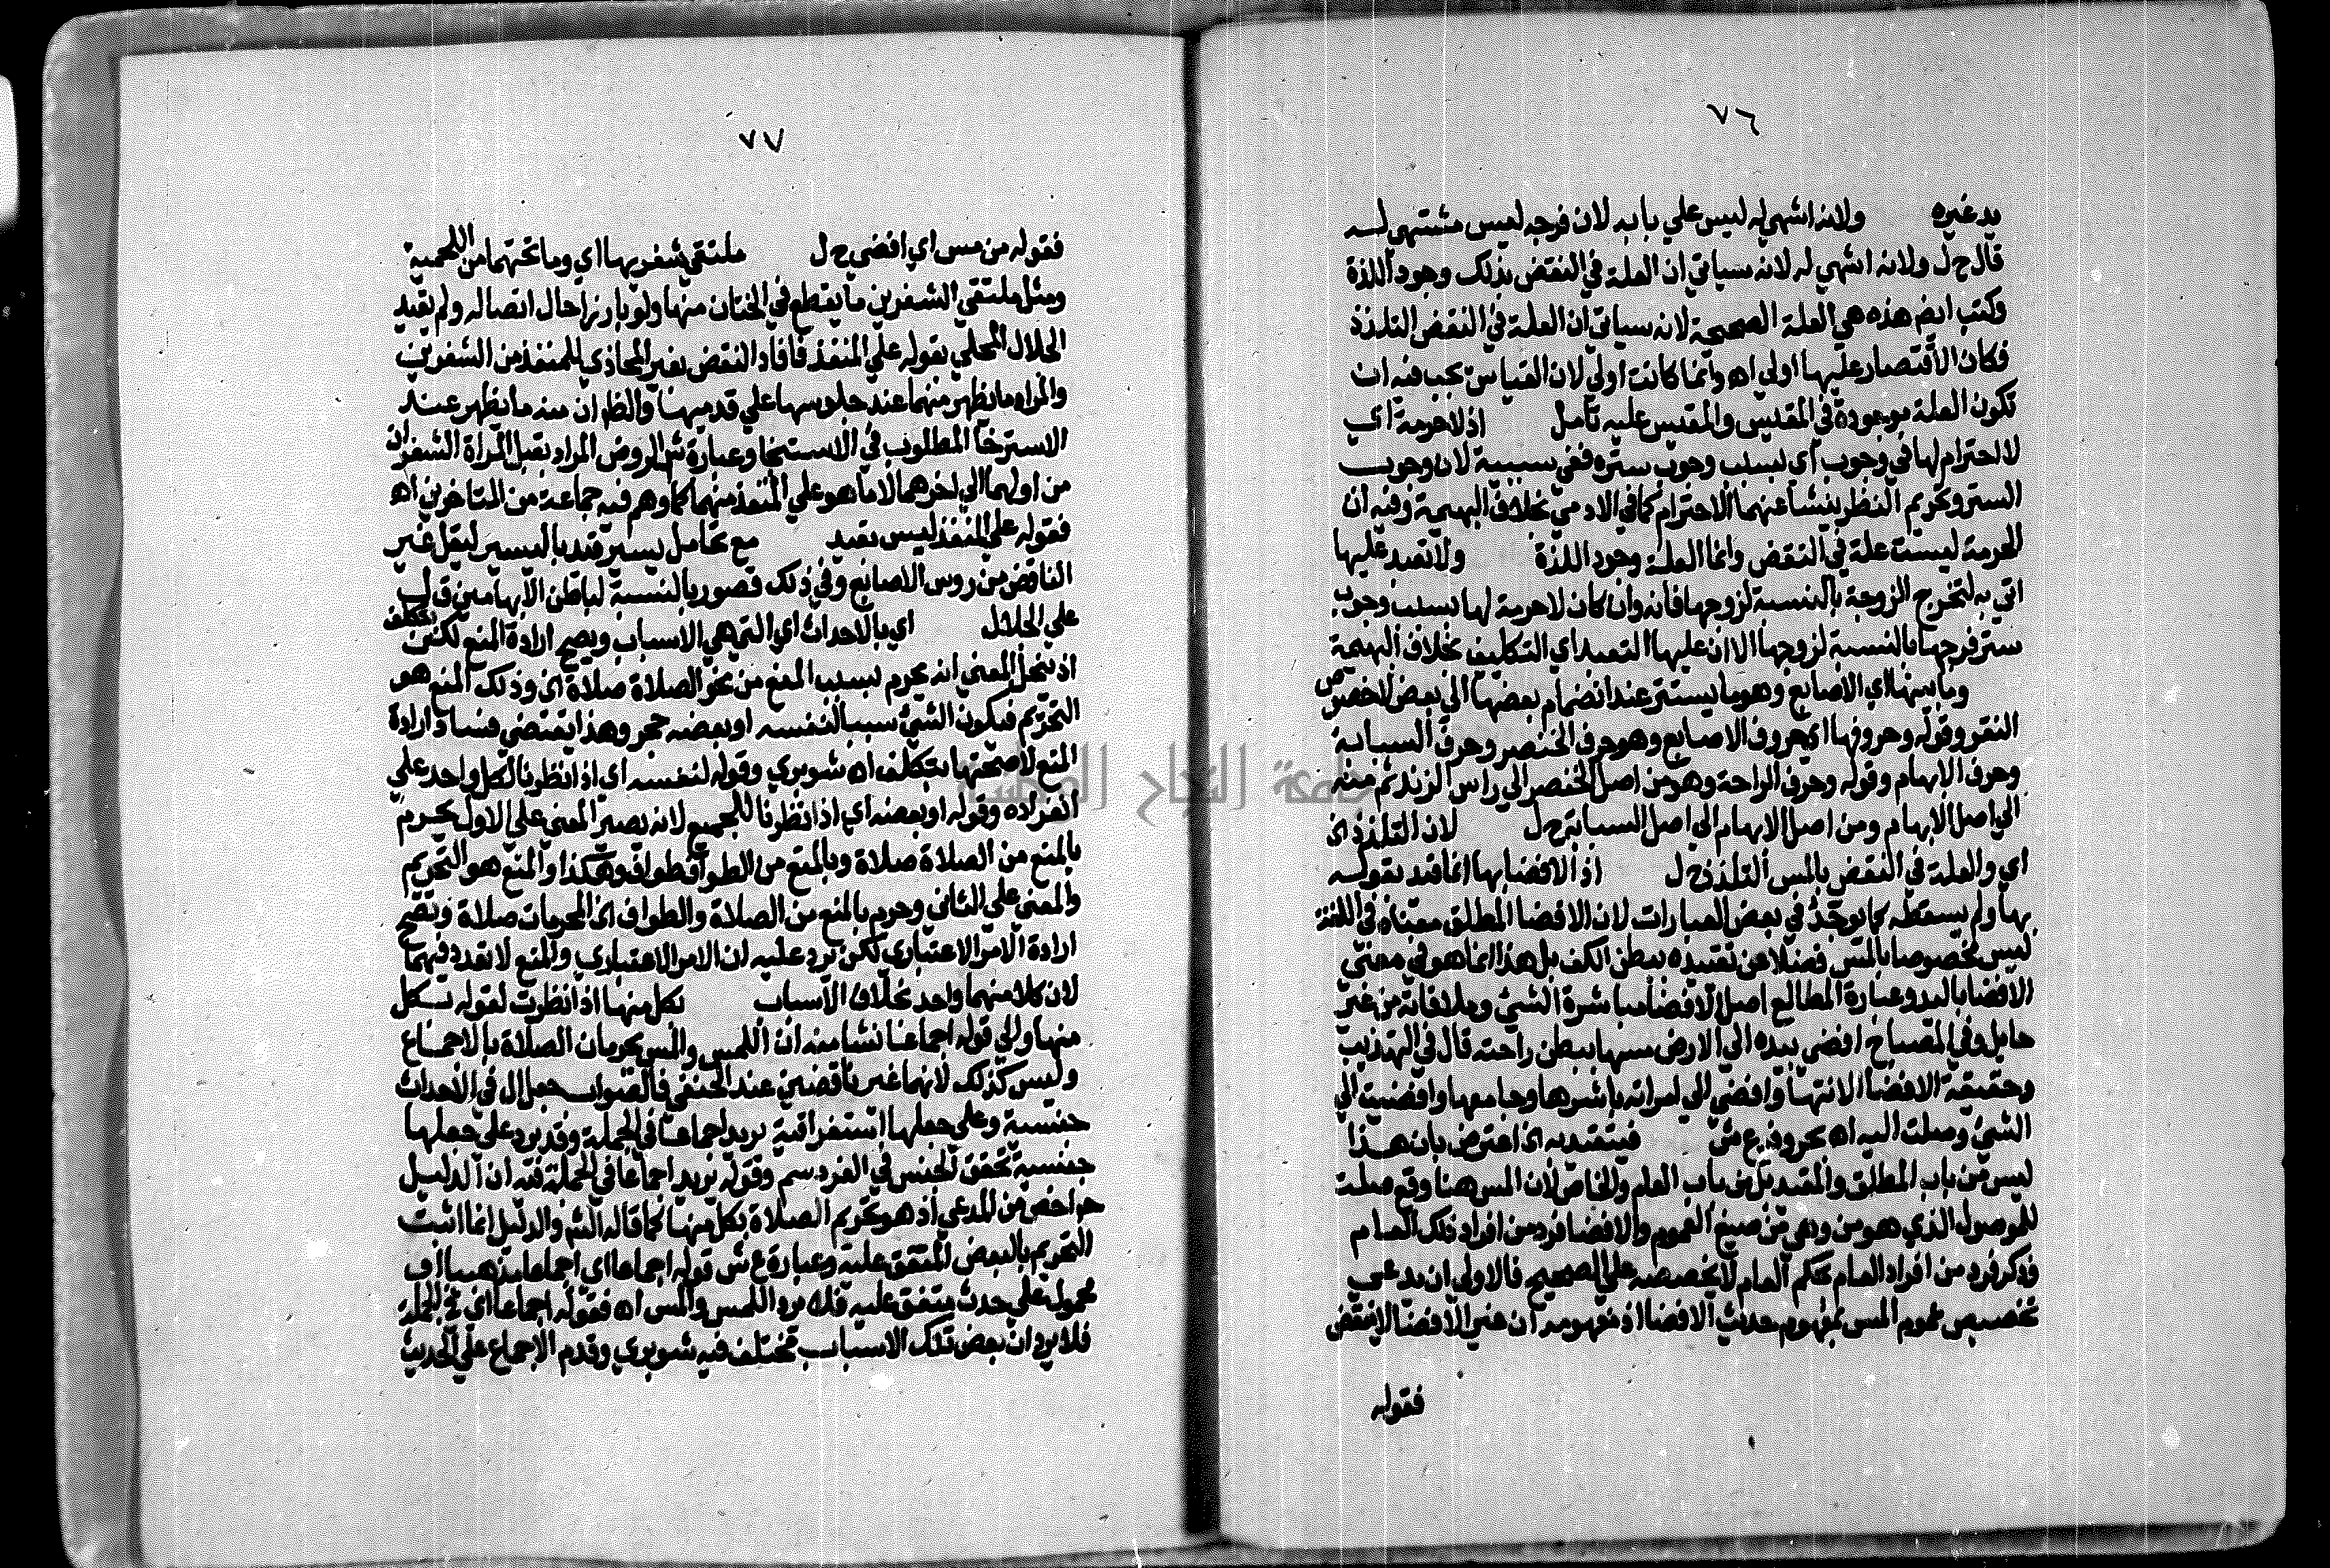 ٧٦
يد غيره ولانه اشهي له ليس علي بابه لان فرجه ليس مشتهي له
قال ح ل ولانه اشهي له لانه سياتي ان العلة في النقض بذلك وجود اللذة
وكتب ايضا هذه هي العلة الصحيحة لانه سياتي ان العلة في النقض التلذذ
فكان الاقتصار عليها اولي اه وانما كانت اولي لان القياس يجب فيه ان
تكون العلة موجودة في المقيس والمقيس عليه تامل اذ لا حرمة اي
لا احترام لها في وجوب اي بسبب وجوب ستره ففي سببية لان وجوب
الستر وتحريم النظر ينشا عنهما الاحترام كما في الادمي بخلاف البهيمة وفيه ان
الحرمة ليست علة في النقض وانما العلة وجود اللذة ولا تعبد عليها
اتي به لتخرج الزوجة بالنسبة لزوجها فانه وان كان لا حرمة لها بسبب وجوب
ستر فرجها بالنسبة لزوجها الا ان عليها التعبد اي التكليف بخلاف البهيمة
وما بينها اي الاصابع وهو ما يستتر عند انضمام بعضها الي بعض لا خصوص
النقر وقوله وحروفها اي حروف الاصابع وهو حرف الخنصر وحرف السبابة
وحرف الابهام وقوله وحرف الراحة وهو من اصل الخنصر الي راس الزند ثم منه
الي اصل الابهام ومن اصل الابهام الي اصل السبابة ح ل لان التلذذ الخ
اي والعلة في النقض بالمس التلذذ ح ل اذ الافضا بها انما قيد بقوله
بها ولم يسقطه كما يوجد في بعض العبارات لان الافضا المطلق معناه في اللغة
ليس مخصوصا بالمس فضلا عن تقييده ببطن الكف بل هذا انما هو في معني
الافضا باليد وعبارة المطالع اصل الافضا مباشرة الشي وملاقاته من غير
حايل وفي المصباح افضي بيده الي الارض مسها ببطن راحته قال في التهذيب
وحقيقة الافضا الانتها وافضي الي امراته باشرها وجامعها وافضيت الي
الشي وصلت اليه اه بحروفه ع ش فيتقيد به الخ اعترض بان هذا
ليس من باب المطلق والمقيد بل من باب العام والخاص لان المس هنا وقع صلة
للموصول الذي هو من وهي من صيغ العموم والافضا فرد من افراد ذلك العام
وذكر فرد من افراد العام بحكم العام لا يخصصه علي الصحيح فالاولي ان يدعي
تخصيص عموم المس بمفهوم حديث الافضا اذ مفهومه ان غير الافضا لا ينقض
فقوله
٧٧
فقوله من مس اي افضي ح ل ملتقي شفريها اي وما تحتهما من اللحمية
ومثل ملتقي الشفرين ما يقطع في الختان منها ولو بارزا حال اتصاله ولم يقيد
الجلال المحلي بقوله علي المنفذ فافاد النقض بغير المحاذي للمنفذ من الشفرين
والمراد ما يظهر منهما عند جلوسها علي قدميها والظ ان منه ما يظهر عند
الاسترخا المطلوب في الاستنجا وعبارة ش الروض المراد بقبل المراة الشفران
من اولهما الي اخرهما لا ما هو علي المنفذ منهما كما وهم فيه جماعة من المتاخرين اه
فقوله علي المنفذ ليس بقيد مع تحامل يسير قيد باليسير ليقل غير
الناقض من روس الاصابع وفي ذلك قصور بالنسبة لباطن الابهامين ق ل
علي الجلال اي بالاحداث اي التي هي الاسباب ويصح ارادة المنع لكن بتكلف
اذ ينحل المعني انه يحرم بسبب المنع من نحو الصلاة صلاة الخ وذلك المنع هو
التحريم فيكون الشي سببا لنفسه او بعضه حجر وهذا يقتضي فساد ارادة
المنع لا صحتها بتكلف اه شوبري وقوله لنفسه اي اذا نظرنا لكل واحد علي
انفراده وقوله او بعضه اي اذا نظرنا للجميع لانه يصير المعني علي الاول يحرم
بالمنع من الصلاة صلاة وبالمنع من الطواف طواف وهكذا والمنع هو التحريم
والمعني علي الثاني وحرم بالمنع من الصلاة والطواف الخ المحرمات صلاة وتصح
ارادة الامر الاعتباري لكن يرد عليه ان الامر الاعتباري والمنع لا تعدد فيهما
لان كلا منهما واحد بخلاف الاسباب بكل منها اذا نظرت لقوله بكل
منها والي قوله اجماعا نشا منه ان اللمس والمس يحرمان الصلاة بالاجماع
وليس كذلك لانهما غير ناقضين عند الحنفي فالصواب جعل ال في الاحداث
جنسية وعلي جعلها استغراقية يريد اجماعا في الجملة وقد يرد علي جعلها
جنسية تحقق الجنس في الفرد سم وقوله يريد اجماعا في الجملة فيه ان الدليل
ح اخص من المدعي اذ هو تحريم الصلاة بكل منها كما قاله الش والدليل انما اثبت
التحريم بالبعض المتفق عليه وعبارة ع ش قوله اجماعا اي اجماعا مذهبيا او
محمول علي حدث متفق عليه فلا يرد اللمس والمس اه فقوله اجماعا اي في الجملة
فلا يرد ان بعض تلك الاسباب مختلف فيه شوبري وقدم الاجماع علي الحديث
جامعة النجاح الوطنية